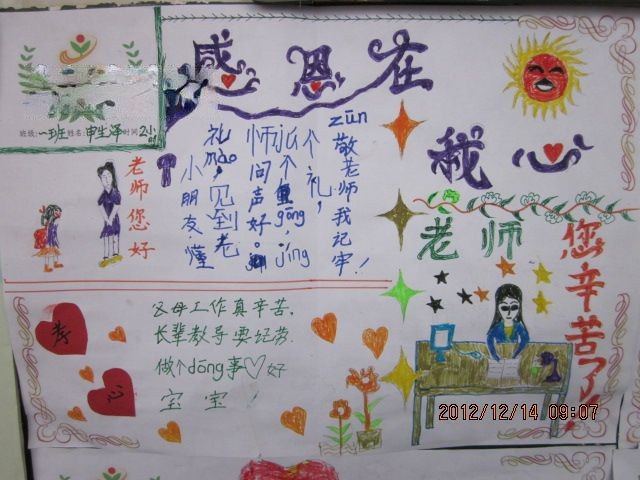 感恩在
我心
班级:一班 姓名:申生泽 时间
老师您好
小朋友懂
礼mào,见到老
师问声好。
个 gōng, jìng
个礼,
zūn敬老师我记牢!
老师
您辛苦了!
孝
心
父母工作真辛苦.
长辈教导要记劳.
做个dōng事好
宝宝!
2012/12/14 09:07